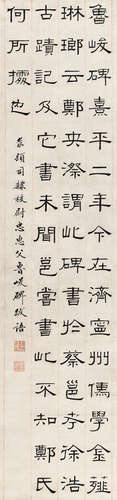 魯峻碑熹平二年今在濟寧州儒學金薤
琳瑯云鄭夾漈謂此碑書於蔡邕徐浩
古蹟記書邕嘗書此不知鄭氏
何所據也
司隸校尉忠惠父魯峻碑跋語